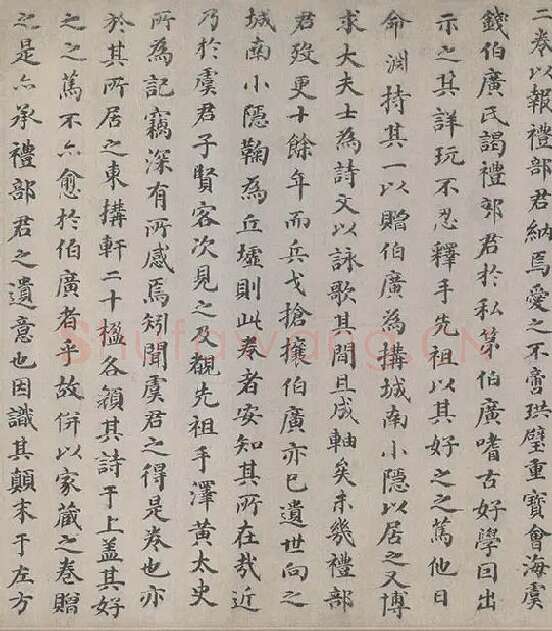 二卷以報禮部君納焉愛之不啻珙璧重寶會海虞
錢伯廣氏謁禮部君於私第伯廣嗜古好學曰出
示之其詳玩不忍釋手先祖以其好之之篤他日
命淵持其一以贈伯廣為搆城南小隱以居之又博
求大夫士為詩文以詠歌其間且成軸矣未幾禮部
君歿更十餘年而兵戈搶攘伯廣亦已遺世向之
城南小隱鞠為丘墟則此卷者安知其所在哉近
乃於虞君子賢客次見之及觀先祖手澤黃太史
所為記竊深有所感焉矧聞虞君之得是卷也亦
於其所居之東搆軒二十楹各額其詩于上蓋其好
之之篤不亦愈於伯廣者乎故併以家藏之卷贈
之是亦承禮部君之遺意也因識其顛末于左方